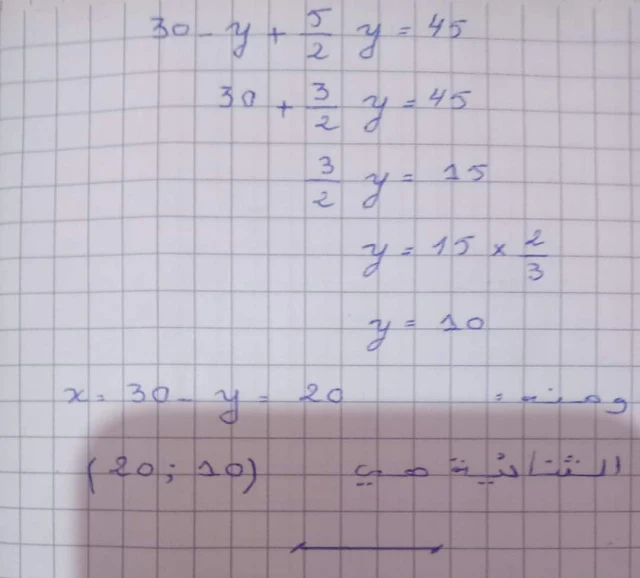 30 - y + 5/2 y = 45
30 + 3/2 y = 45
3/2 y = 15
y = 15 × 2/3
y = 10
ومنه : x = 30 - y = 20
الثنائية هي (20 ; 10)